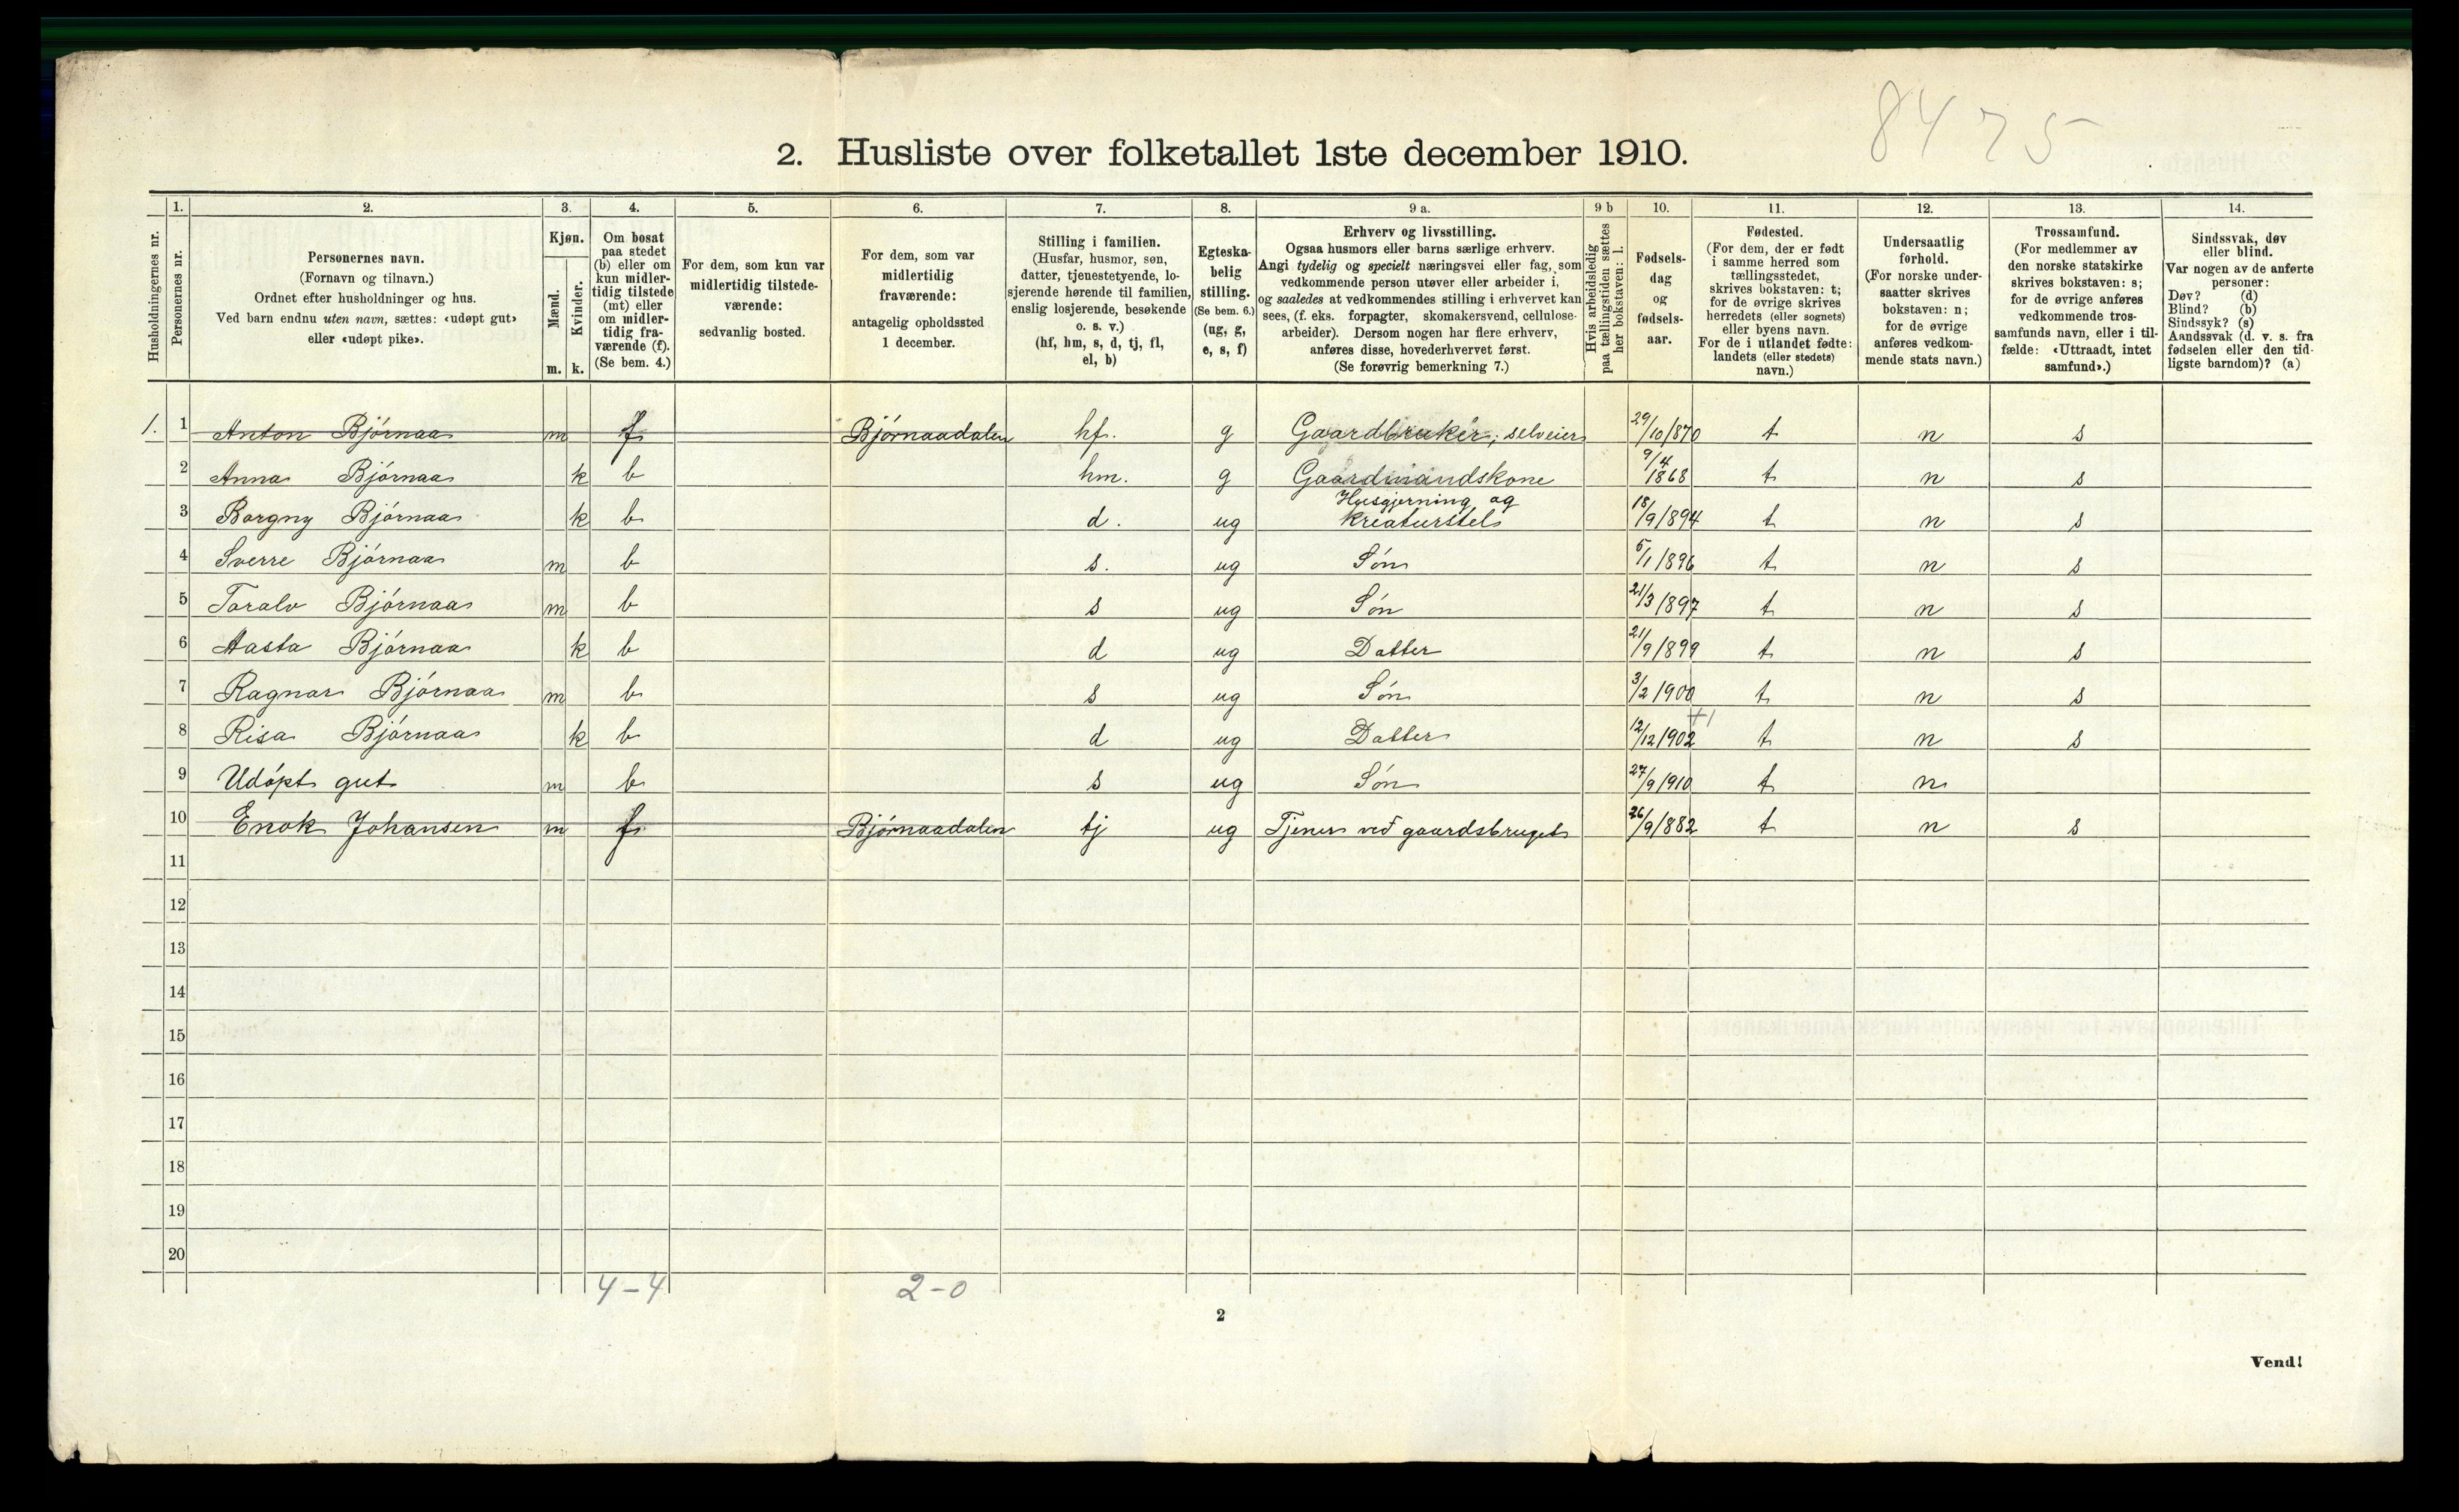 8475
2. Husliste over folketallet 1ste december 1910.
Husholdningernes nr.
1.
Personernes nr.
2.
Personernes navn.
(Fornavn og tilnavn.)
Ordnet efter husholdninger og hus.
Ved barn endnu uten navn, sættes: «udøpt gut»
eller «udøpt pike».
3.
Kjøn.
Mænd.
Kvinder.
m. k.
4.
Om bosat
paa stedet
(b) eller om
kun midler-
tidig tilstede
(mt) eller
om midler-
tidig fra-
værende (f).
(Se bem. 4.)
5.
For dem, som kun var
midlertidig tilstede-
værende:
sedvanlig bosted.
6.
For dem, som var
midlertidig
fraværende:
antagelig opholdssted
1 december.
7.
Stilling i familien.
(Husfar, husmor, søn,
datter, tjenestetyende, lo-
sjerende hørende til familien,
enslig losjerende, besøkende
o. s. v.)
(hf, hm, s, d, tj, fl,
el, b)
8.
Egteska-
belig
stilling.
(Se bem. 6.)
(ug, g,
e, s, f)
9 a.
Erhverv og livsstilling.
Ogsaa husmors eller barns særlige erhverv.
Angi tydelig og specielt næringsvei eller fag, som
vedkommende person utøver eller arbeider i,
og saaledes at vedkommendes stilling i erhvervet kan
sees, (f. eks. forpagter, skomakersvend, cellulose-
arbeider). Dersom nogen har flere erhverv,
anføres disse, hovederhvervet først.
(Se forøvrig bemerkning 7.)
9 b
Hvis arbeidsledig
paa tællingstiden sættes
her bokstaven: l.
10.
Fødsels-
dag
og
fødsels-
aar.
11.
Fødested.
(For dem, der er født
i samme herred som
tællingsstedet,
skrives bokstaven: t;
for de øvrige skrives
herredets (eller sognets)
eller byens navn.
For de i utlandet fødte:
landets (eller stedets)
navn.)
12.
Undersaatlig
forhold.
(For norske under-
saatter skrives
bokstaven: n;
for de øvrige
anføres vedkom-
mende stats navn.)
13.
Trossamfund.
(For medlemmer av
den norske statskirke
skrives bokstaven: s;
for de øvrige anføres
vedkommende tros-
samfunds navn, eller i til-
fælde: «Uttraadt, intet
samfund».)
14.
Sindssvak, døv
eller blind.
Var nogen av de anførte
personer:
Døv? (d)
Blind? (b)
Sindssyk? (s)
Aandssvak (d. v. s. fra
fødselen eller den tid-
ligste barndom)? (a)
1. 1 Anton Bjørnaa m f Bjørnaadalen hf. g Gaardbruker, selveier 29/10/870 t n s
2 Anna Bjørnaa k b hm. g Gaardmandskone 9/4 1868 t n s
3 Borgny Bjørnaa k b d. ug Husgjerning og kreaturstel 18/9/894 t n s
4 Sverre Bjørnaa m b s. ug Søn 5/1/896 t n s
5 Toralv Bjørnaa m b s ug Søn 21/3/897 t n s
6 Aasta Bjørnaa k b d ug Datter 21/9/899 t n s
7 Ragnar Bjørnaa m b s ug Søn 3/2 1900 t n s
8 Risa Bjørnaa k b d ug Datter 12/12/1902 +1 t n s
9 Udøpt gut m b s ug Søn 27/9/1910 t n
10 Enok Johansen m f Bjørnaadalen tj ug Tjener ved gaardsbruget 26/9/882 t n s
11
12
13
14
15
16
17
18
19
20
4-4 2-0
2
Vend!